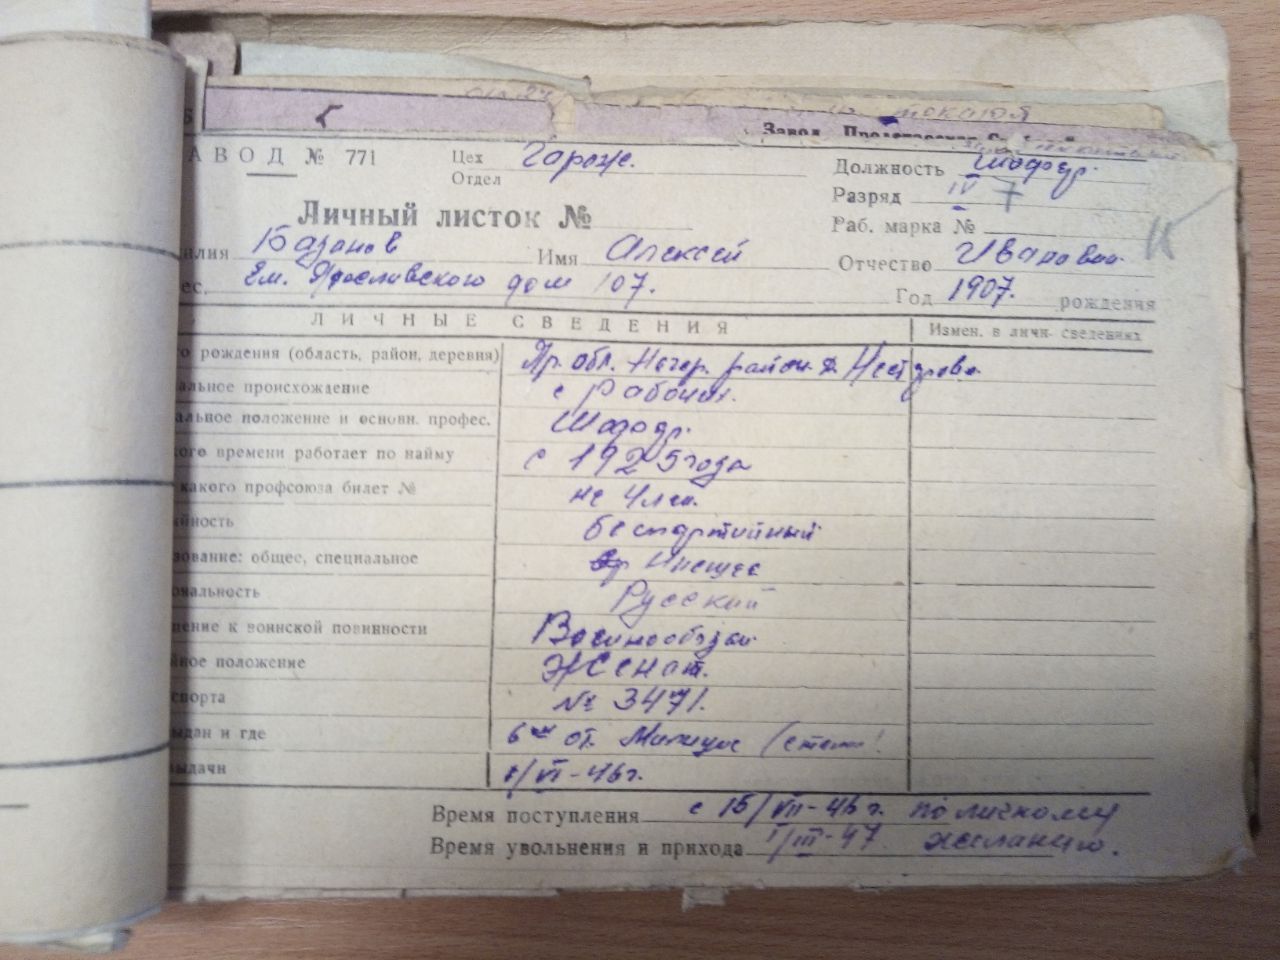 токаюя
Завод
АВОД № 771 Цех Отдел Гараж. Должность Шофер.
Разряд IV 7
Личный листок № Раб. марка №
илия Базанов Имя Алексей Отчество Иванович
ес. Ем. Ярославского дом 107. Год 1907. рождения
ЛИЧНЫЕ СВЕДЕНИЯ Измен. в личн. сведениях
о рождения (область, район, деревня) Яр. обл. район д.
альное происхождение с Рабочих.
альное положение и основн. профес. Шофер.
ого времени работает по найму с 1925 года
какого профсоюза билет № не член.
йность беспартийный
зование: общее, специальное Низшее
ональность Русский
шение к воинской повинности Военнообязан
йное положение Женат.
спорта № 3471.
ыдан и где 6ым от. Милиции
выдачи /VI-46г.
Время поступления с 15/VII-46г. по личному
Время увольнения и прихода 1/III-47 желанию.